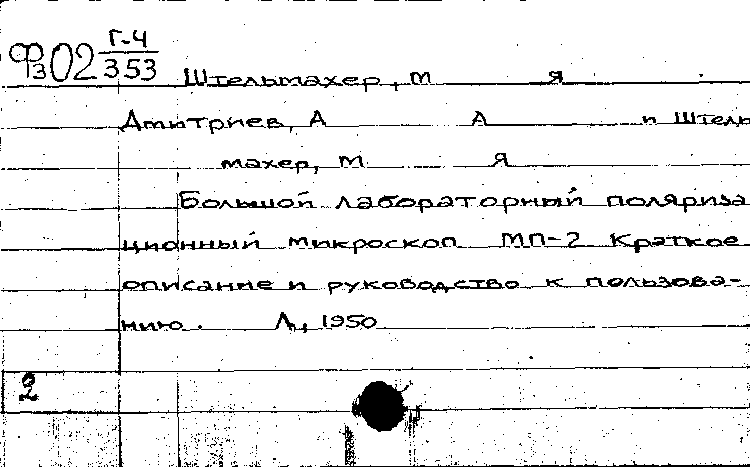 Г-4
Фз02 353
Штельмахер, М Я
Дмитриев, А А и Штель
махер, М Я
Большой лабораторный поляриза
ционный микроскоп МП-2 Краткое
описание и руководство к пользова-
нию. Л, 1950
2